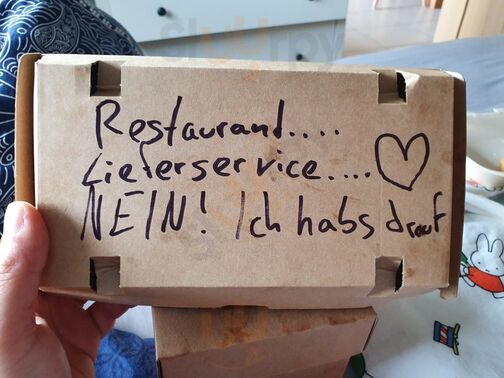 Sluurpy
Restaurant....
Lieferservice....
NEIN! Ich habs drauf